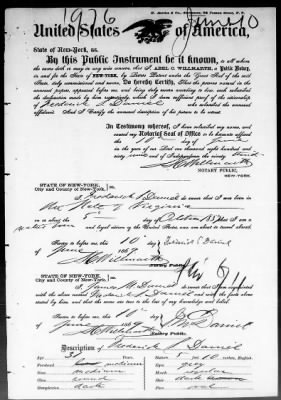 1976 June 10
United States of America,
State of New-York, ss.
By this Public Instrument be it known, to all whom
the same doth or may in any wise concern, that I, ABEL C. WILLMARTH, a Public Notary,
in and for the State of NEW-YORK, by Letters Patent under the Great Seal of the said
State, duly commissioned and sworn, Do hereby Certify, That the persons named in the
annexed papers, appeared before me, and being duly sworn
Frederick S Daniel
affiant. And I Certify the annexed description of his person to be correct.
In Testimony whereof, I have subscribed my name, and
caused my Notarial Seal of Office to be hereunto affixed
the 10 day of June
in the year of our Lord one thousand eight hundred and
sixty nine and of Independence the ninety third
A C Willmarth
NOTARY PUBLIC,
NEW-YORK.
STATE OF NEW-YORK,
City and County of New-York, ss.
I, Frederick S Daniel do swear that I was born in
the State of Virginia
on or about the 5 day of October
and loyal citizen of the United States, and am about to travel abroad.
Sworn to before me, this 10
day of June 1869
Frederick S Daniel
A C Willmarth
Notary Public.
STATE OF NEW-YORK,
City and County of New-York, ss.
I, James M Daniel do swear that I am acquainted
with the above named Frederick S Daniel and with the facts above
stated by him, and that the same are true to the best of my knowledge and belief.
Sworn to before me, this 10
day of June 1869
A C Willmarth
Notary Public.
Description of Frederick S Daniel
Age 31
Stature 5 10 inches, English.
Forehead medium
Eyes grey
Nose medium
Mouth
Chin round
Hair dark
Complexion dark
Face oval